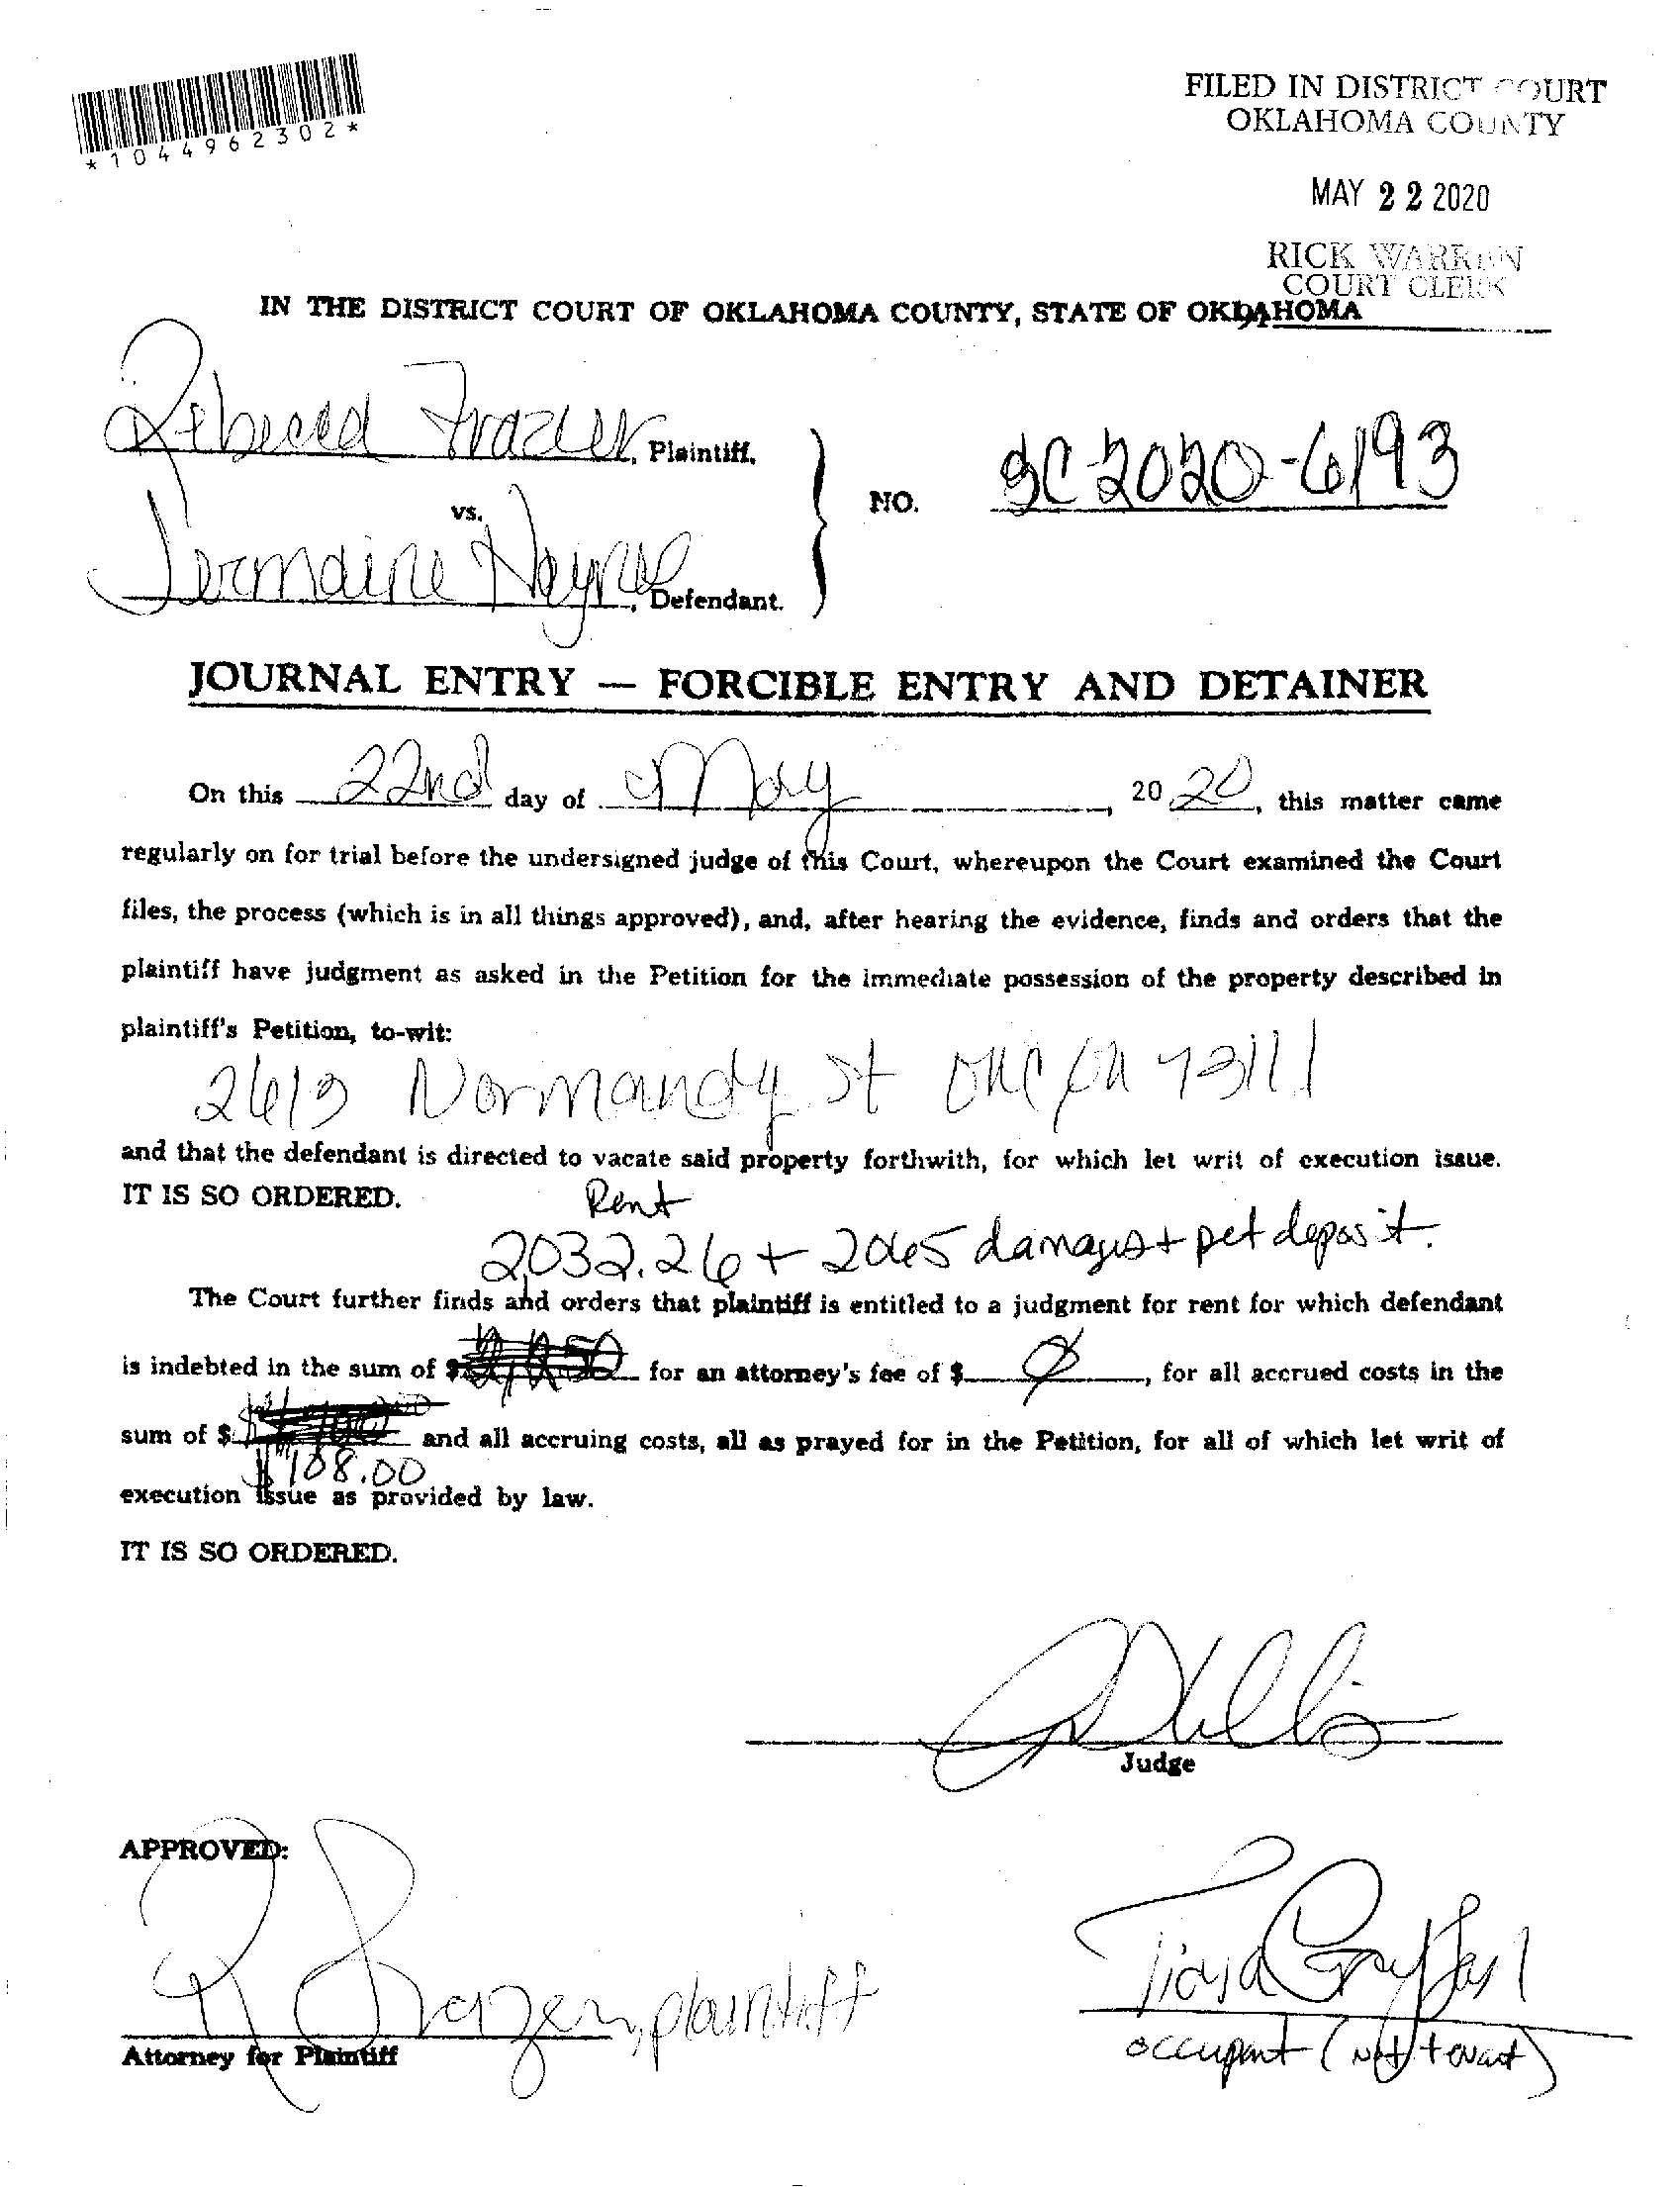 *1044962302*
FILED IN DISTRICT COURT
OKLAHOMA COUNTY
MAY 22 2020
RICK WARREN
COURT CLERK
IN THE DISTRICT COURT OF OKLAHOMA COUNTY, STATE OF OKLAHOMA
Rebecca Frazier, Plaintiff,
vs.
NO. SC-2020-6193
Jermaine Haynes, Defendant.
JOURNAL ENTRY — FORCIBLE ENTRY AND DETAINER
On this 22nd day of May, 2020, this matter came
regularly on for trial before the undersigned judge of this Court, whereupon the Court examined the Court
files, the process (which is in all things approved), and, after hearing the evidence, finds and orders that the
plaintiff have judgment as asked in the Petition for the immediate possession of the property described in
plaintiff's Petition, to-wit:
2613 Normandy St OKC OK 73111
and that the defendant is directed to vacate said property forthwith, for which let writ of execution issue.
IT IS SO ORDERED.
Rent
2,032.26 + 2065 damages + pet deposit.
The Court further finds and orders that plaintiff is entitled to a judgment for rent for which defendant
is indebted in the sum of $ for an attorney's fee of $ Ø, for all accrued costs in the
sum of $ and all accruing costs, all as prayed for in the Petition, for all of which let writ of
$108.00
execution issue as provided by law.
IT IS SO ORDERED.
Judge
APPROVED:
R Frazier, plaintiff
Attorney for Plaintiff
occupant (not tenant)